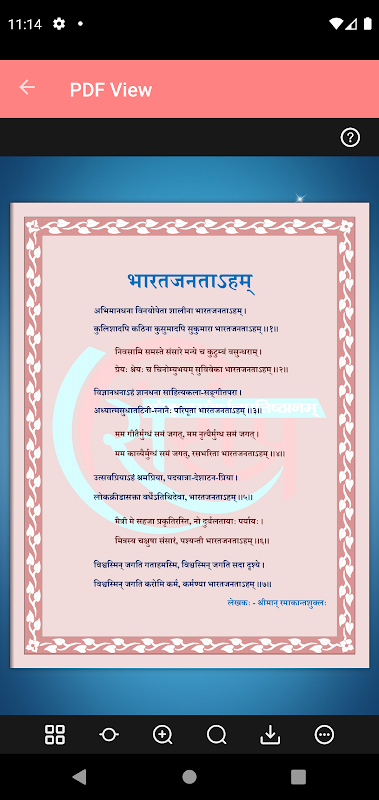 11:14
PDF View
भारतजनताऽहम्
अभिमानधना विनयोपेता शालीना भारतजनताऽहम् ।
कुलिशादपि कठिना कुसुमादपि सुकुमारा भारतजनताऽहम् ॥१॥
निवसामि समस्ते संसारे मन्ये च कुटुम्बं वसुन्धराम् ।
प्रेयः श्रेयः च चिनोम्युभयम् सुविवेका भारतजनताऽहम् ॥२॥
विज्ञानधनाऽहं ज्ञानधना साहित्यकला-सङ्गीतपरा ।
अध्यात्मसुधातटिनी-स्नानैः परिपूता भारतजनताऽहम् ॥३॥
मम गीतैर्मुग्धं समं जगत्, मम नृत्यैर्मुग्धं समं जगत् ।
मम काव्यैर्मुग्धं समं जगत्, रसभरिता भारतजनताऽहम् ॥४॥
उत्सवप्रियाऽहं श्रमप्रिया, पदयात्रा-देशाटन-प्रिया ।
लोकक्रीडासक्ता वर्धेऽतिथिदेवा, भारतजनताऽहम् ॥५॥
मैत्री मे सहजा प्रकृतिरस्ति, नो दुर्बलतायाः पर्यायः ।
मित्रस्य चक्षुषा संसारं, पश्यन्ती भारतजनताऽहम् ॥६॥
विश्वस्मिन् जगति गताहमस्मि, विश्वस्मिन् जगति सदा दृश्ये ।
विश्वस्मिन् जगति करोमि कर्म, कर्मण्या भारतजनताऽहम् ॥७॥
लेखकः - श्रीमान् रमाकान्तशुक्लः